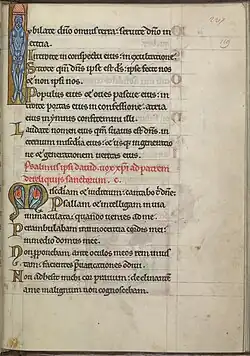 Iubilate dño omnis terra: seruite dño in
leticia.
Introite in conspectu eius: in exultatione.
Scitote qm̄ dñs ipse est ds̄: ipse fecit nos
& non ipsi nos.
Populus eius & oues pascue eius: in
troite portas eius in confessione: atria
eius in ymnis confitemini illi.
Laudate nomen eius qm̄ suauis est dñs. in
eternum misericordia eius: & usq; in generatio
ne & generationem ueritas eius.
Psalmus ipsi dauid. uox xpi ad patrem
sanctorum. c.
Misericordiam & iudicium: cantabo t' dñe.
Psallam & intelligam in uia
immaculata: quando uenies ad me.
Perambulabam in innocentia cordis mei:
in medio domus mee.
Non pponebam ante oculos meos rem inius
tam: facientes puaricationes odiui.
Non adhesit michi cor prauum: declinantē
a me malignum non cognoscebam.